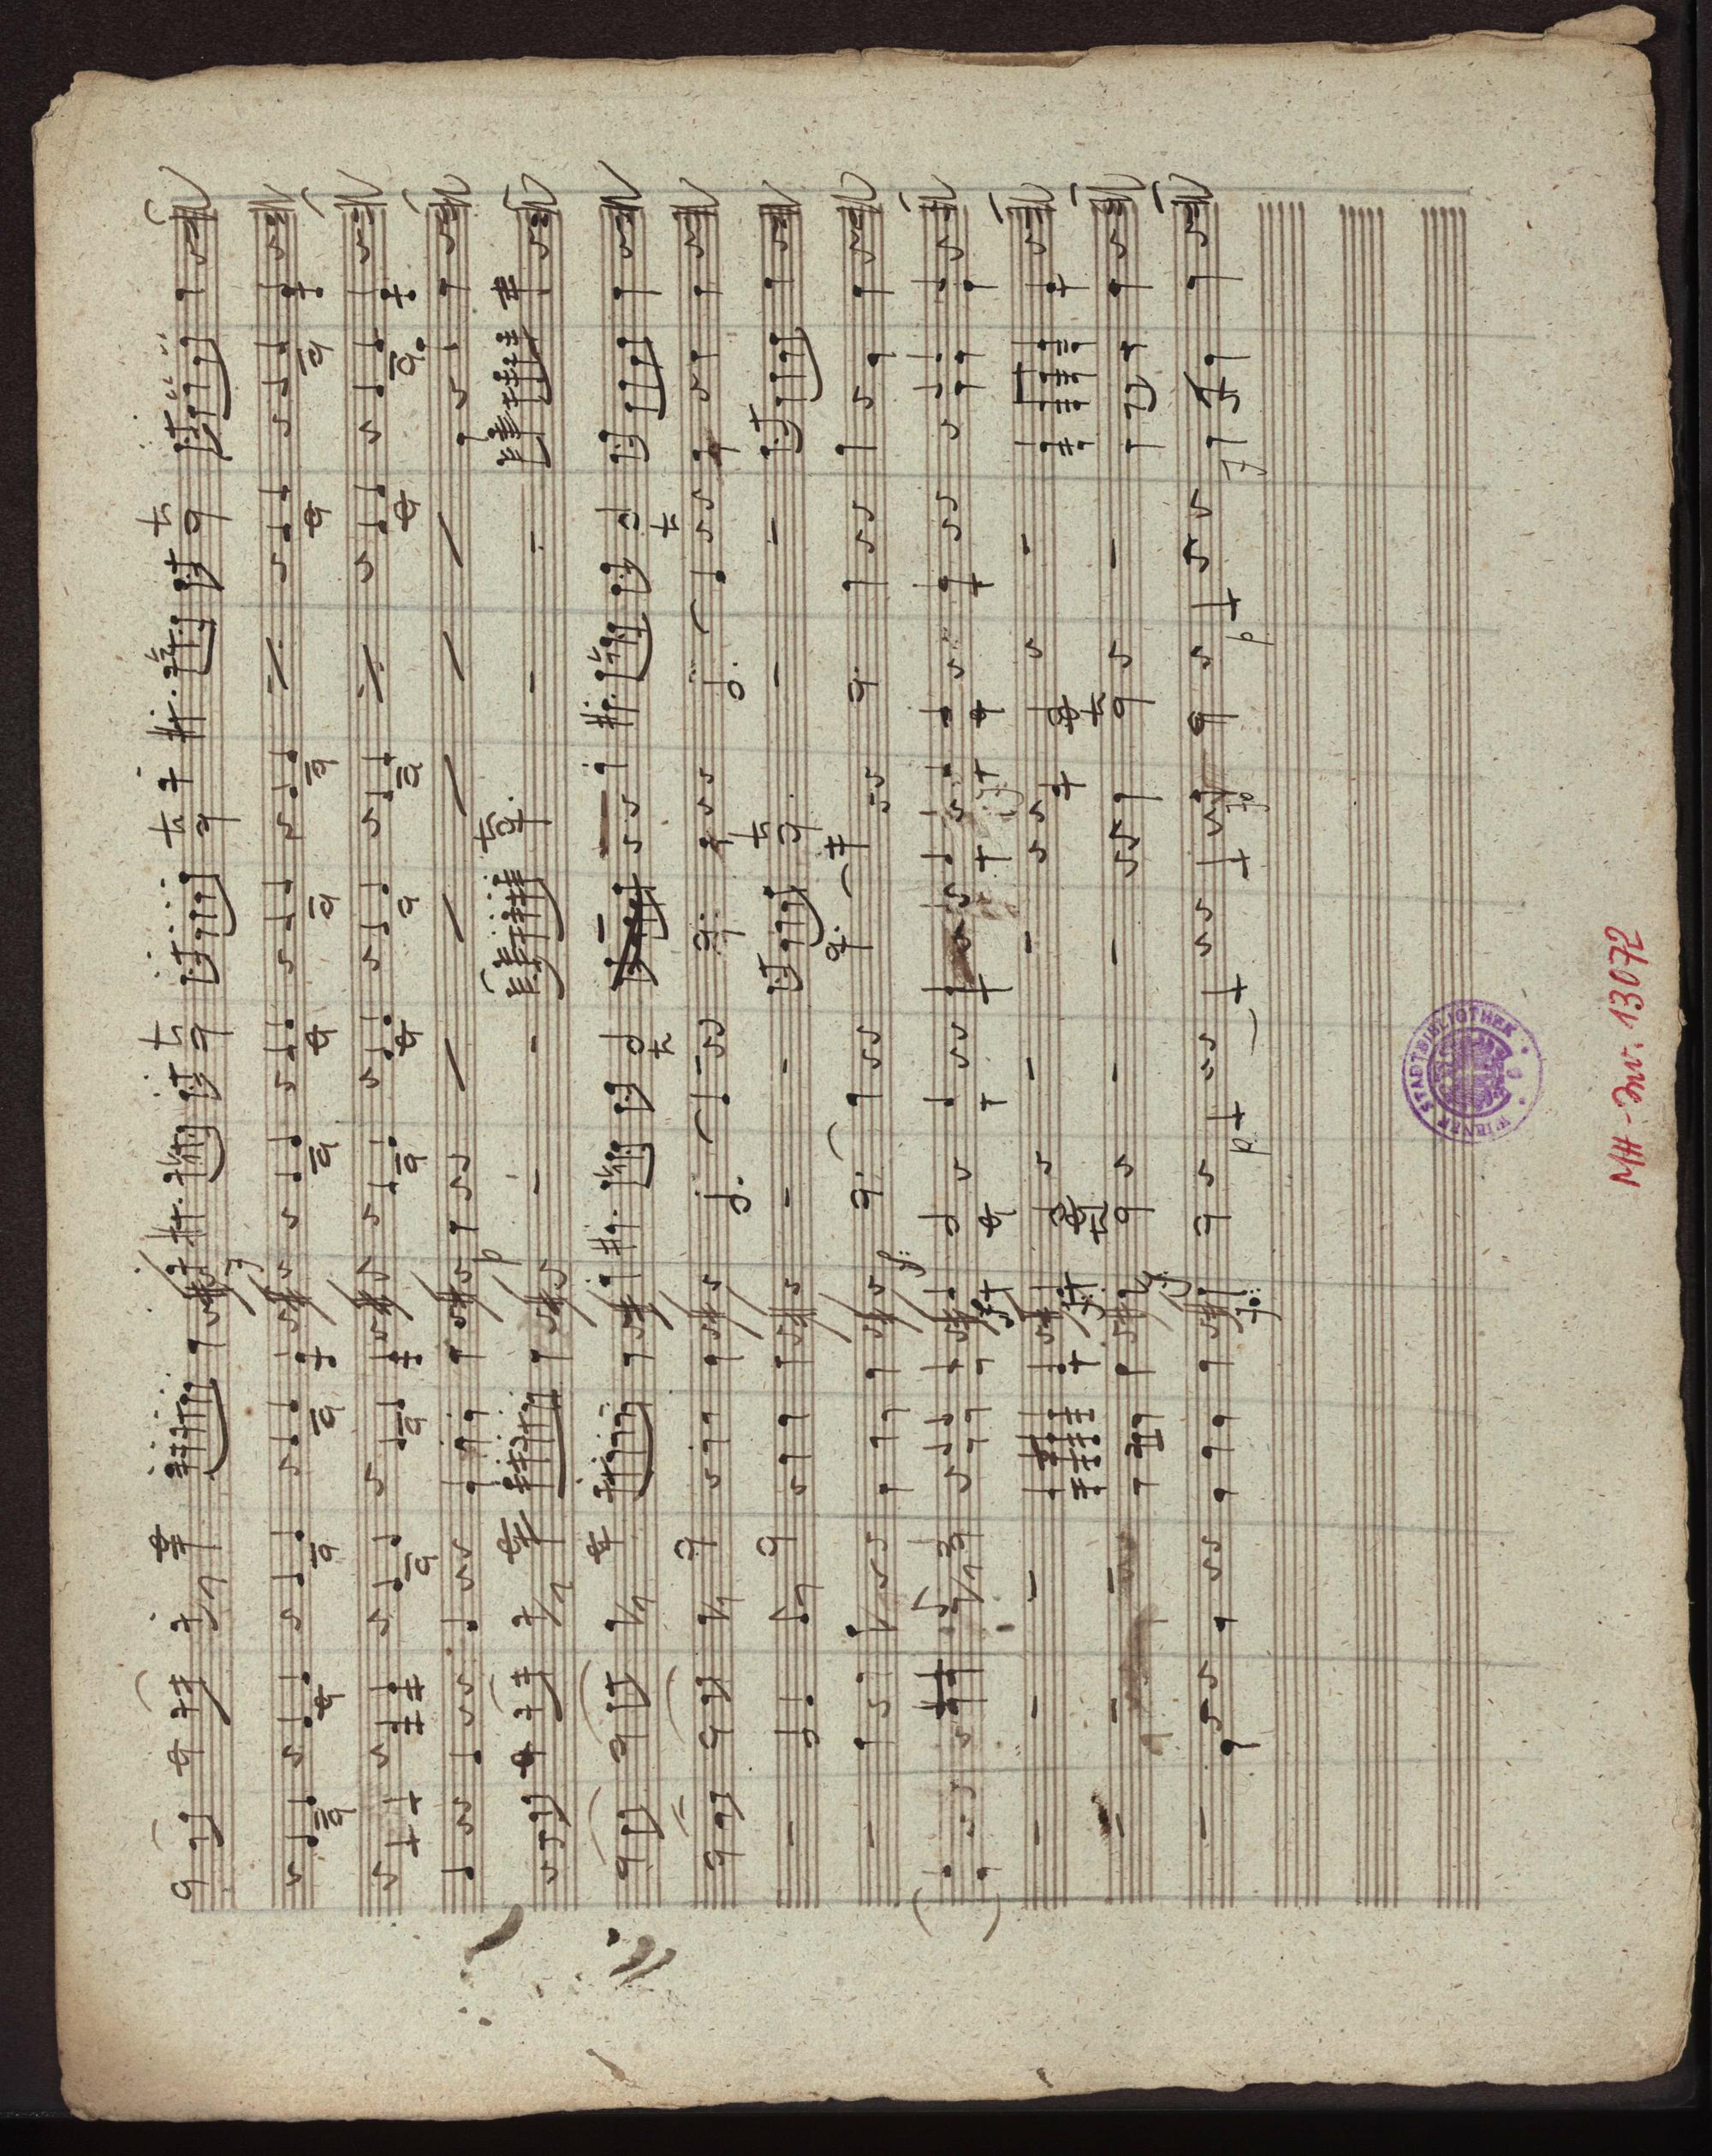 MH-Inv. 13072
WIENER STADTBIBLIOTHEK
p
p
p